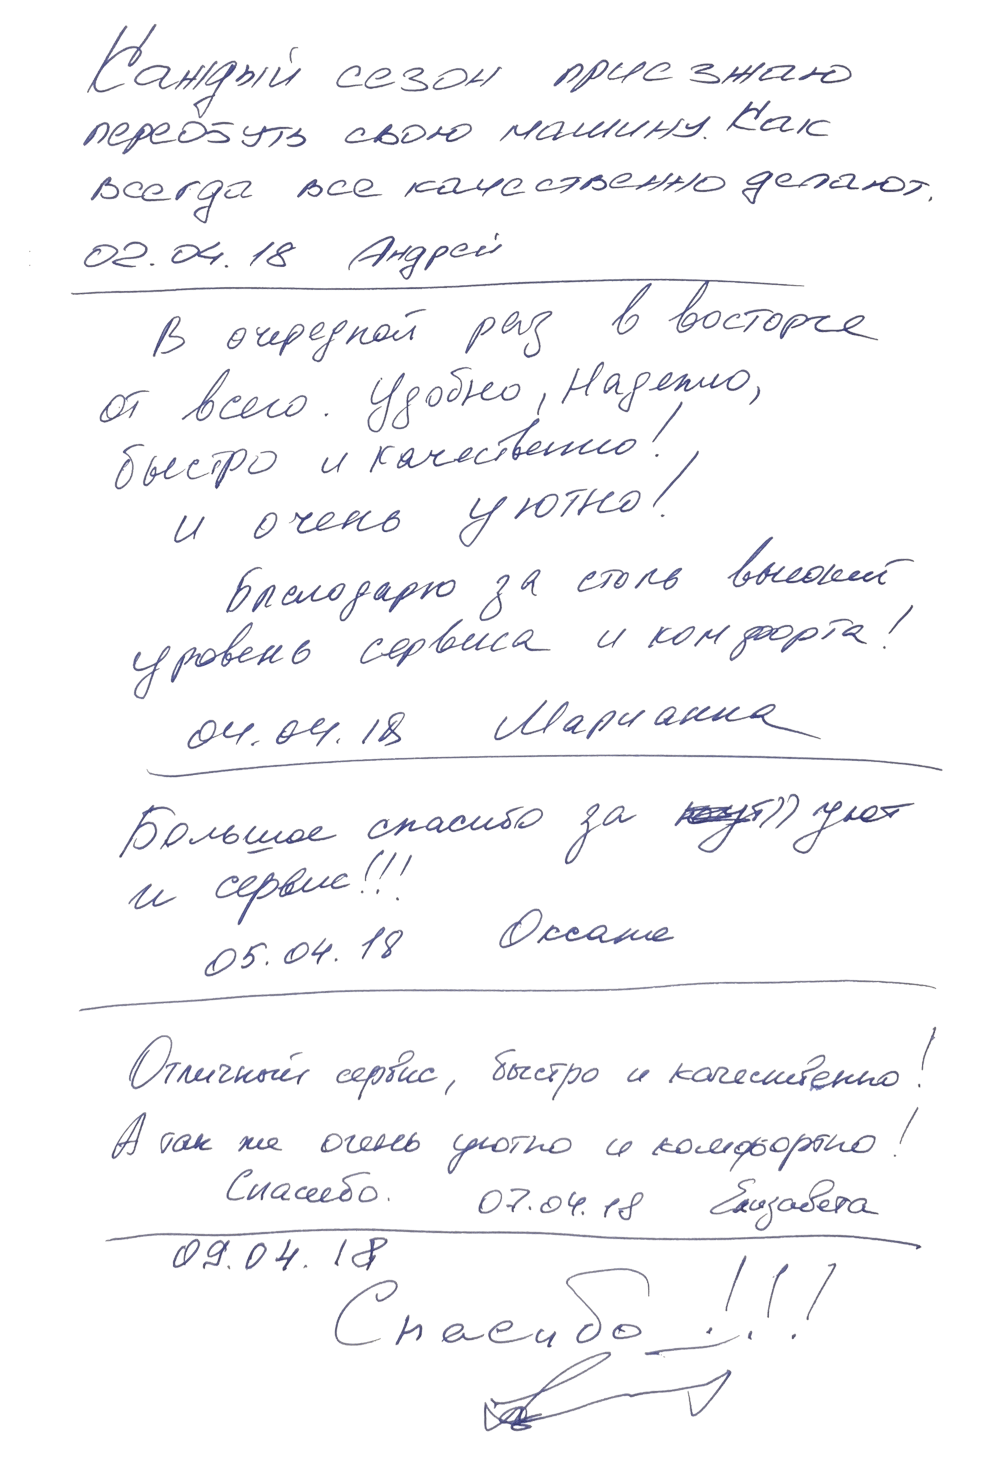 Каждый сезон приезжаю
переобуть свою машину. Как
всегда все качественно делают.
02.04.18 Андрей
В очередной раз в восторге
от всего. Удобно, Надежно,
быстро и качественно!
и очень уютно!
Благодарю за столь высокий
уровень сервиса и комфорта!
04.04.18 Марианна
Большое спасибо за )) уют
и сервис!!!
05.04.18 Оксана
Отличный сервис, быстро и качественно!
А так же очень уютно и комфортно!
Спасибо. 07.04.18 Елизавета
09.04.18
Спасибо!!!